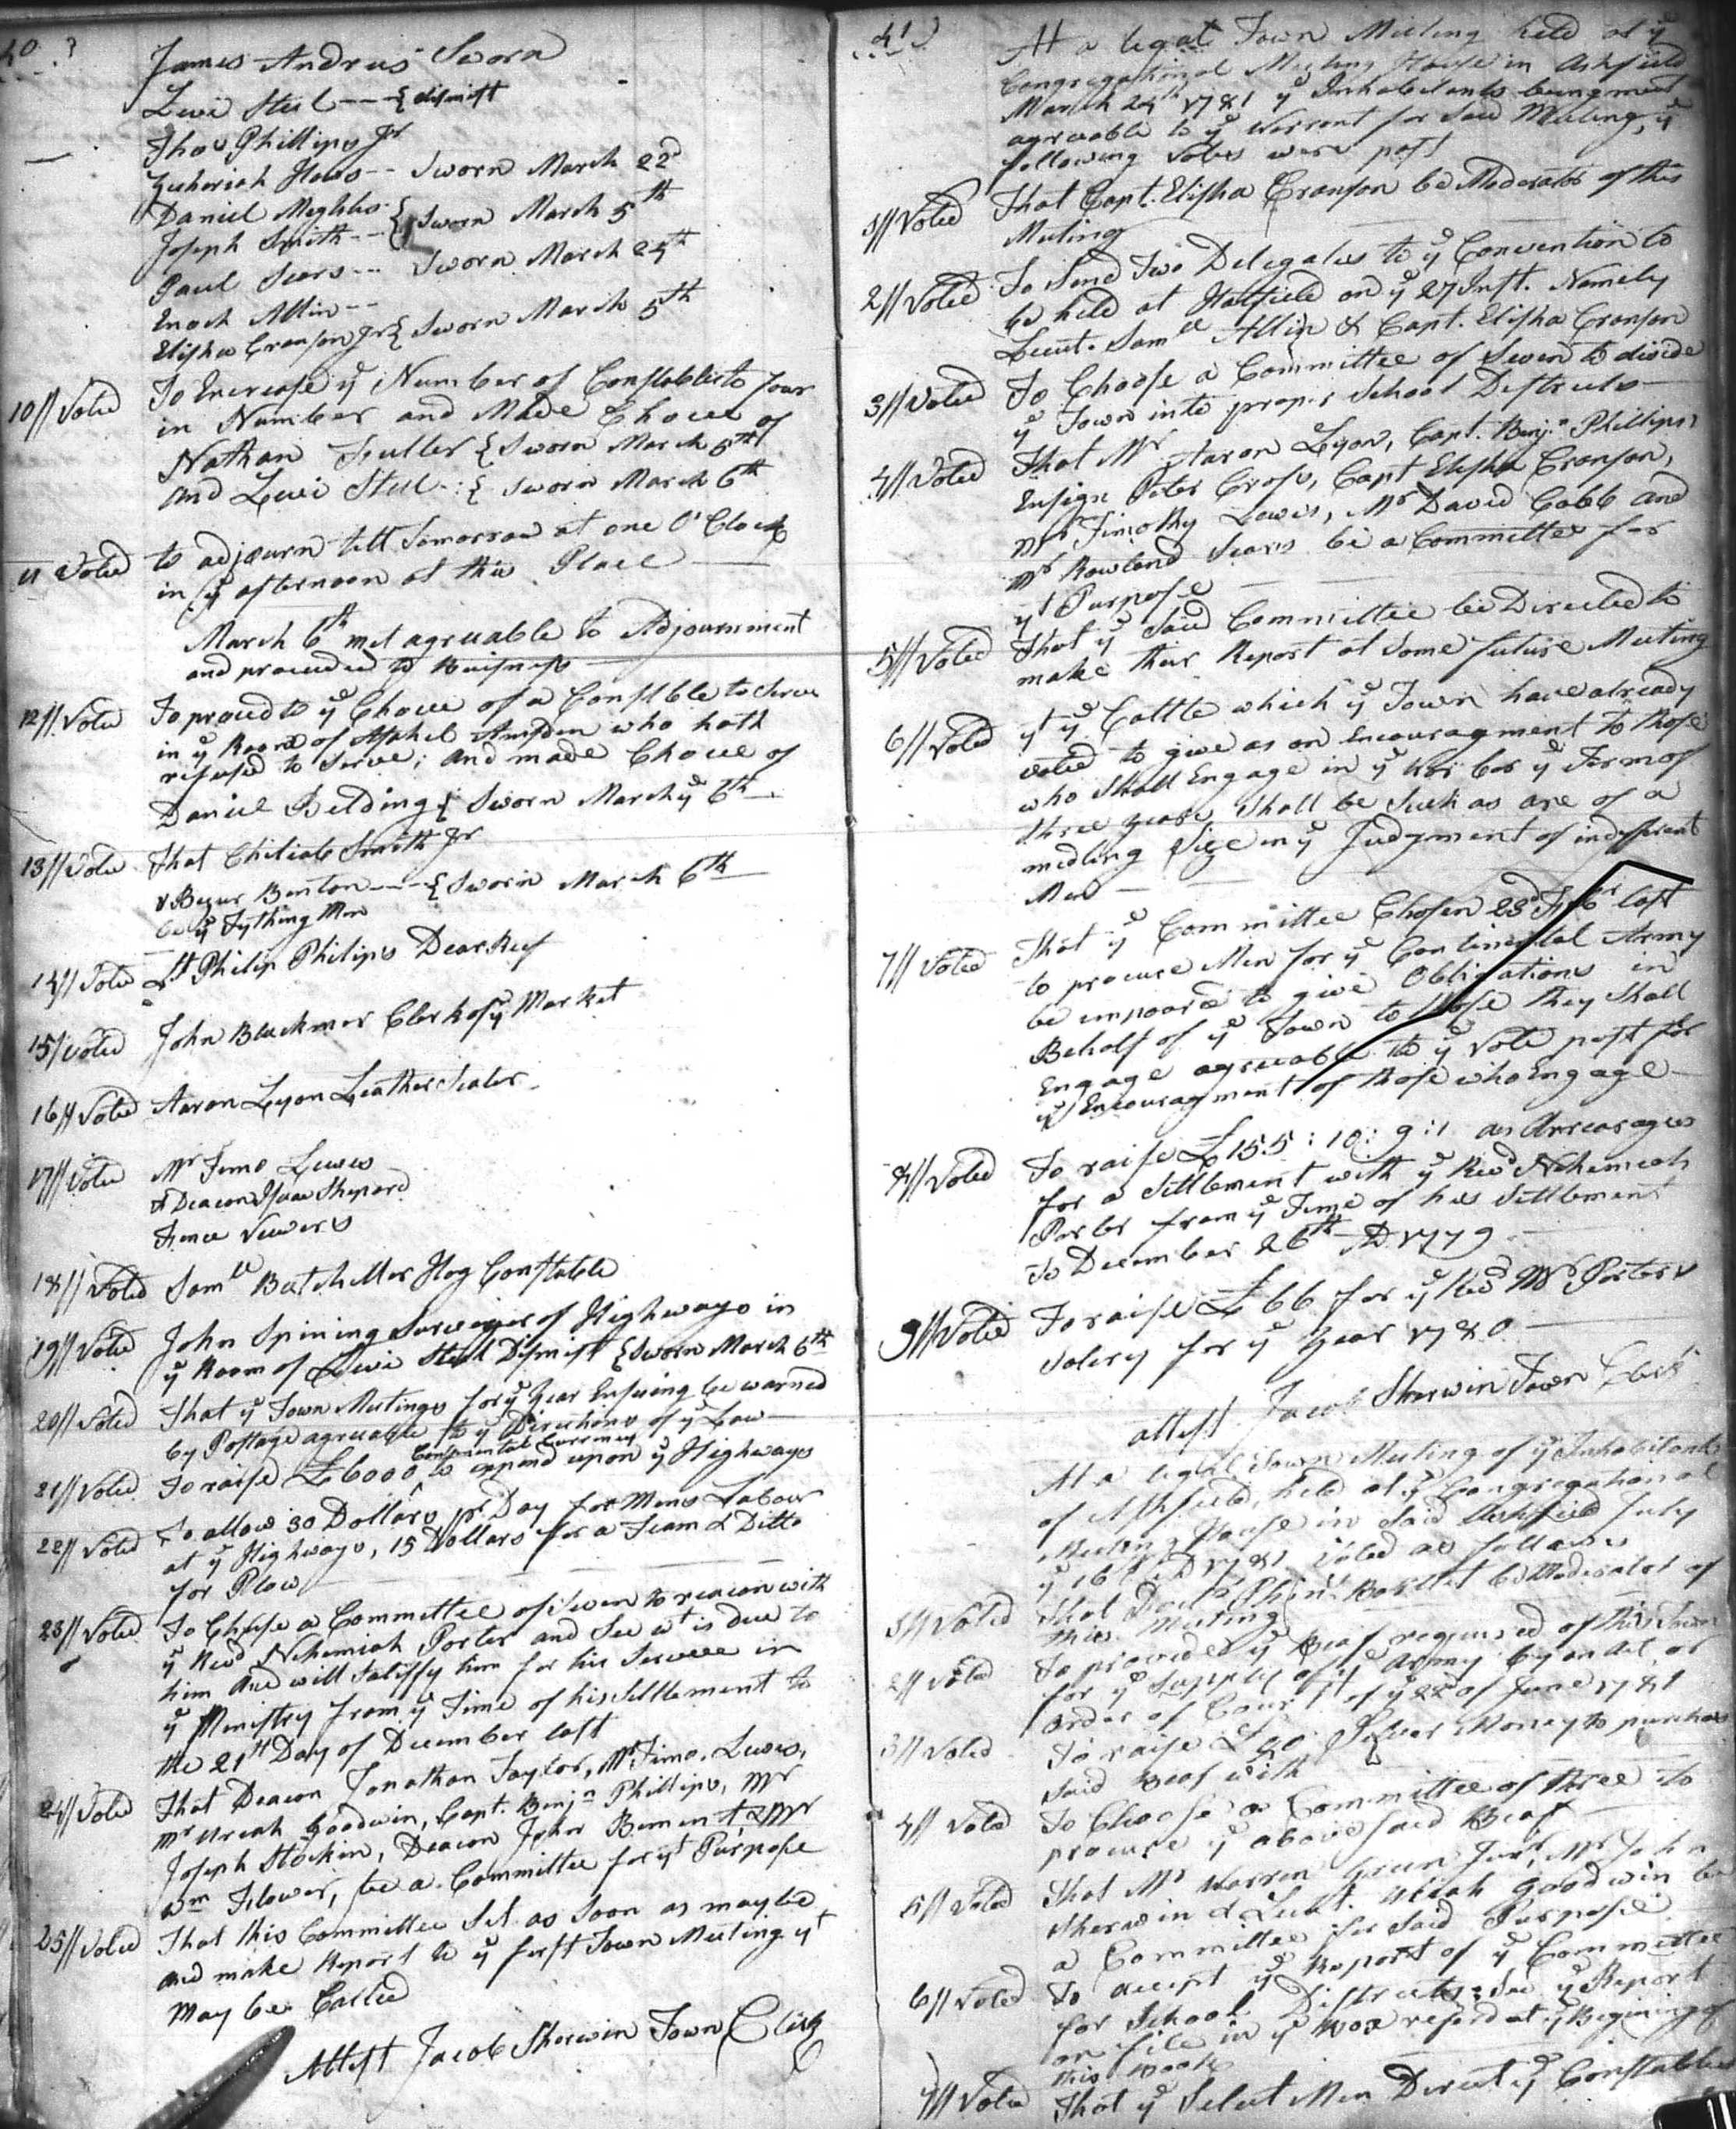 40
James Andrus Sworn
Levi Steel --- { dismist
Thos Phillips Jr
Zecheriah Haws -- Sworn March 22d
Daniel Meghls
Joseph Smith -- { Sworn March 5th
Paul Sears --- Sworn March 24th
Enoch Allin --
Elisha Cranson Jr { Sworn March 5th
10// Voted To Encrease ye Number of Constables to four
in Number and Made Choice of
Nathan Fuller { Sworn March 5th
and Levi Steel -: { Sworn March 6th
11 Voted to adjourn till Tomorrow at one O'Clock
in ye afternoon at this Place
March 6th met agreuable to Adjournment
and proceeded to Buisness
12// Voted To proced to ye Choice of a Constble to Serve
in ye Roome of Asphel Amsden who hath
refused to Serve; and made Choice of
Daniel Belding { Sworn March ye 6th
13// Voted That Chiliab Smith Jr
& Bezur Benton --- { Sworn March 6th
be ye Tything Men
14// Voted Lt Philip Philips Dear Reef
15/ Voted John Blackmer Clerk of ye Market
16// Voted Aaron Lyon Leather Sealer
17// Voted Mr Timo Lewis
& Deacon Isaac Shepard
Fence Viewers
18// Voted Samll Batcheller Hog Constable
19// Voted John Spining Surveyier of Highways in
ye Room of Levi Steel Dismist { Sworn March 6th
20// Voted That ye Town Meetings for ye Year Ensuing be warned
by Postage agreuable to ye Directions of ye Law
21// Voted To raise £6000 Continental Currency to expend upon ye Highways
22// Voted To allow 30 Dollars pr Day for Mens Labour
at ye Highways, 15 Dollars for a Team & Ditto
for Plow
23// Voted To Chuse a Committee of Seven to reacon with
ye Revd Nehemiah Porter and See wt is due to
him and will Satisfy him for his Service in
ye Ministry from ye Time of his Settlement to
the 21st Day of December last
24// Voted That Deacon Jonathan Taylor, Mr Timo. Lewis,
Mr Ureah Goodwin, Capt. Benjn Phillips, Mr
Joseph Stockin, Deacon John Bement, & Mr
Wm Flower, be a Committee for yt Purpose
25// Voted That this Committee Set as Soon as may be
and make Report to ye first Town Meeting yt
may be Called
Attest Jacob Sherwin Town Clerk
41
At a legal Town Meeting held at ye
Congregational Meeting House in Ashfield
March 24th 1781 ye Inhabitants being meet
agreuable to ye Warrent for Said Meeting, ye
following Votes were past
1// Voted That Capt. Elisha Cranson be Moderator of this
Meeting
2// Voted To Send Two Delegates to ye Convention to
be held at Hatfield on ye 27 Inst. Namely
Lieut. Samll Allin & Capt. Elisha Cranson
3// Voted To Choose a Committee of Seven to divide
ye Town into proper School Destricts
4// Voted That Mr Aaron Lyon, Capt. Benjn Phillips,
Ensign Peter Cross, Capt Elisha Cranson,
Mr Timothy Lewis, Mr David Cobb and
Mr Rowland Sears be a Committee for
yt Purpose
5// Voted That ye Said Committee be Directed to
make their Report at Some future Meeting
6// Voted yt ye Cattle which ye Town have already
voted to give as an Encouragment to those
who Shall Engage in ye War for ye Term of
three years Shall be Such as are of a
midling Size in ye Judgment of indifferent
Men
7// Voted That ye Committee Chosen 23d Febr last
to procure Men for ye Continental Army
be impoared to give Obligations in
Behalf of ye Town to those they Shall
Engage agreuable to ye Vote past for
ye Encouragment of those who Engage
8// Voted To raise £155:10:9:1 as Arrearages
for a Settlement with ye Revd Nehemiah
Porter from ye Time of his Settlement
To December 26th AD 1779
9// Voted To raise £66 for ye Revd Mr Porters
Salery for ye Year 1780
attest Jacob Sherwin Town Clerk
At a legal Town Meeting of ye Inhabitants
of Ashfield, held at ye Congregational
Meeting House in Said Ashfield July
ye 16th AD 1781 Voted as follows
1// Voted That Doctr Phins Bartlet be Moderator of
this Meeting
2// Voted To provide ye Beaf required of this Town
for ye Supply of ye Army by an Act or
order of Court of ye 22d of June 1781
3// Voted To raise £90 Silver Money to purchas
Said Beaf with
4// Voted To Choose a Committee of three to
procure ye above Said Beaf
5// Voted That Mr Warren Green Junr, Mr John
Sherwin & Lieut. Uriah Goodwin be
a Committee for Said Purpose
6// Voted To accept ye Report of ye Committee
for School Districts; See ye Report
on file in ye Box referd at ye Begining of
this Book
7// Voted That ye Select Men Direct ye Constables